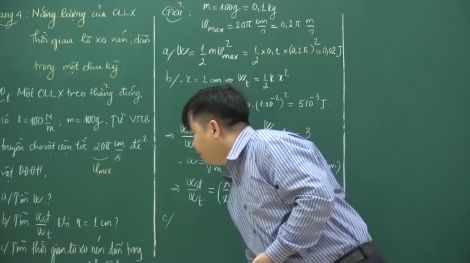 ạng 4: Năng lượng của CLLX
Thời gian lò xo nén, dãn
trong một chu kỳ
Một CLLX treo thẳng đứng
có k = 100 N/m; m = 100g. Từ VTCB
truyền cho vật vận tốc 20π cm/s để
vật DĐĐH.
vmax
a/ Tìm W?
b/ Tìm Wđ/Wt khi x = 1cm?
c/ Tìm thời gian lò xo nén, dãn trong
Giải: m = 100g = 0,1 kg
vmax = 20π cm/s = 0,2π m/s
a/ W = 1/2 m v²max = 1/2 × 0,1 × (0,2π)² = 0,02 J
b/ x = 1cm ⇒ Wt = 1/2 k x²
(1.10⁻²)² = 5.10⁻³ J
3
⇒ Wđ/Wt = (
c/